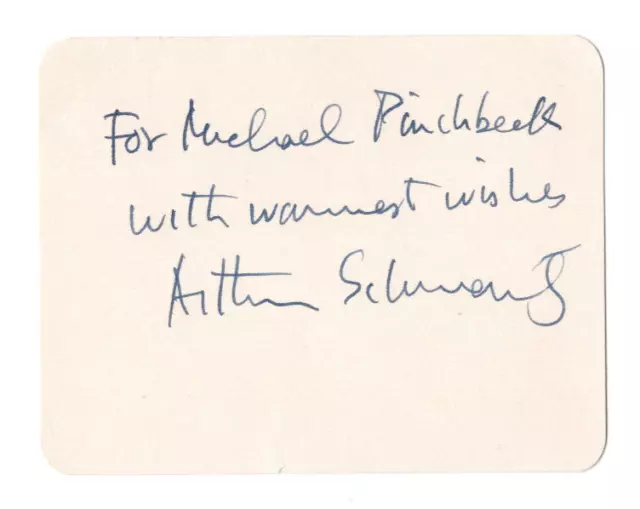 For Michael Pinchbeck
with warmest wishes
Arthur Schwartz